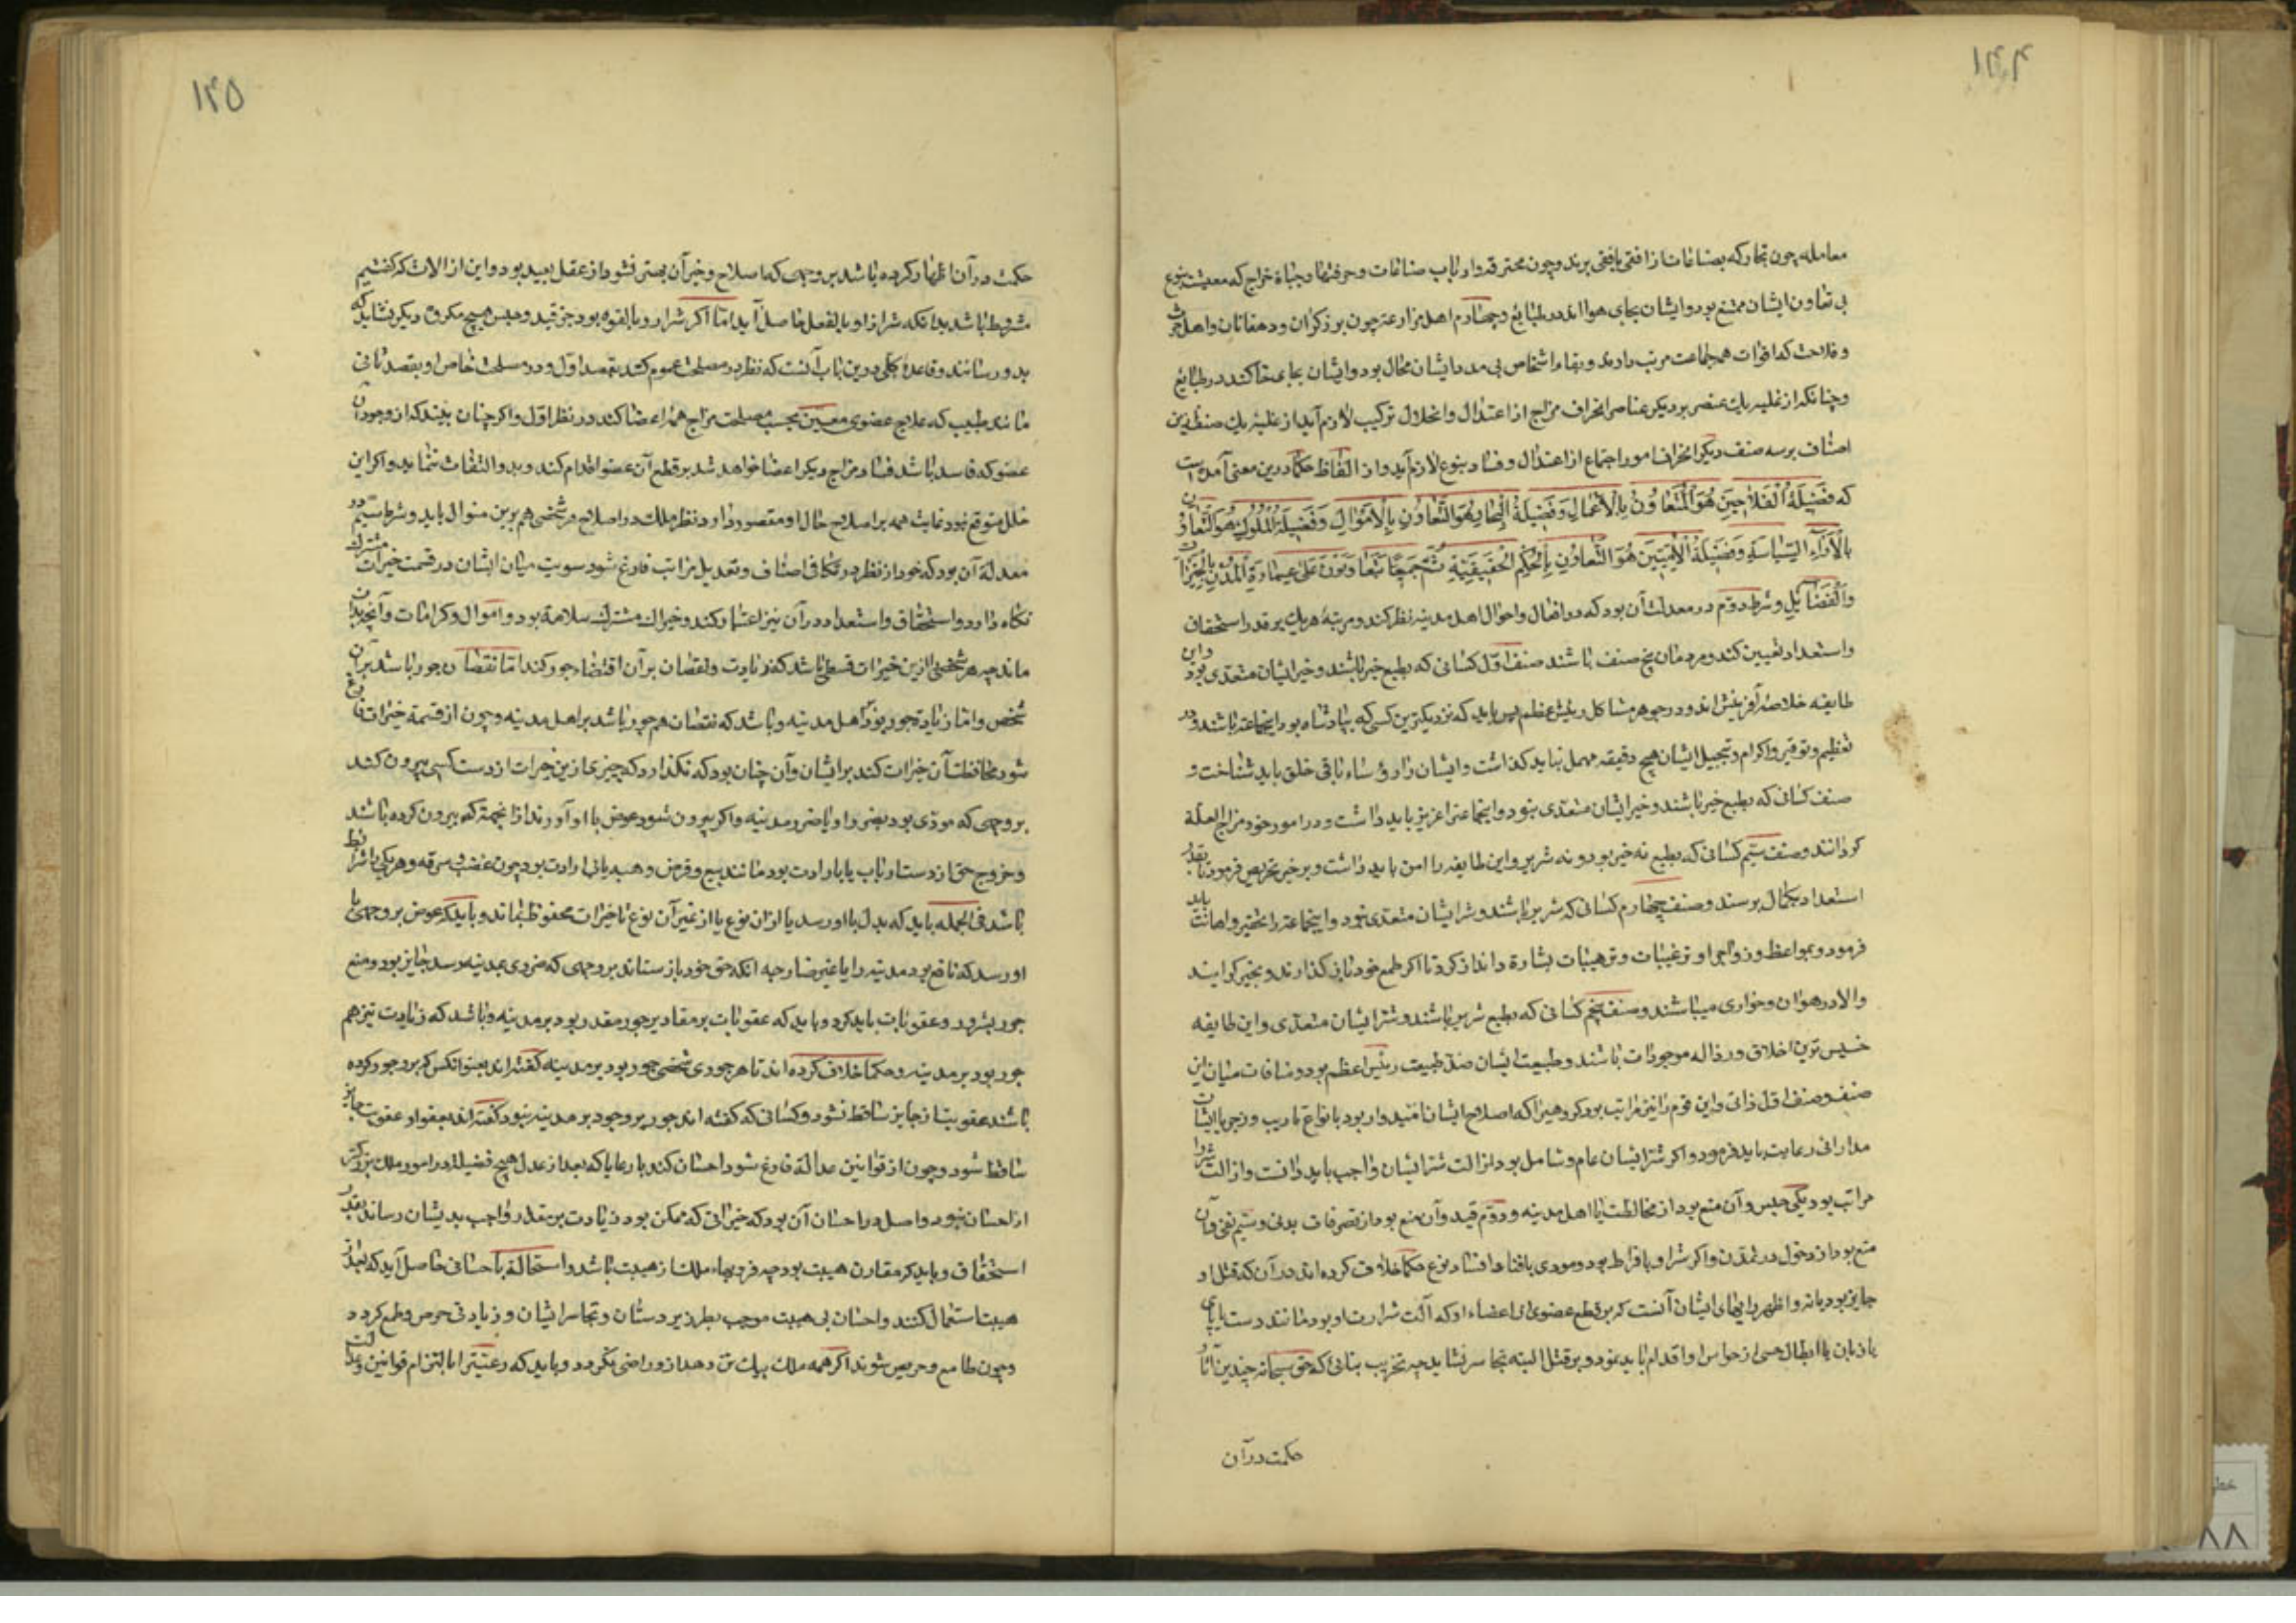 ۱۴۴
معامله چون تجار که بضاعات از افقی بافقی برند و چون محترفه و ارباب صناعات و حرفتها و جباة خراج که معیشت نوع
بی تعاون ایشان ممتنع بود و ایشان بجای هوا اند در طبایع و چهارم اهل مزارعه چون برزکران و دهقانان و اهل حرث
و فلاحت که اقوات همه جماعت مرتب دارند و بقاء اشخاص بی مدد ایشان محال بود و ایشان بجای خاکند در طبایع
و چنانکه از غلبه یک عنصر بر دیکر عناصر انحراف مزاج از اعتدال و انحلال ترکیب لازم آید از غلبه یک صنف ازین
اصناف بر سه صنف دیکر انحراف امور اجتماع از اعتدال و فساد بنوع لازم آید و از الفاظ حکما درین معنی آمده است
که فَضیلَةُ الْفَلاّحینَ هُوَ الْتَّعاوُنُ بِالْاَعْمالِ وَ فَضیلَةُ الْتُّجارِ هُوَ التَّعاوُنِ بِالْاَمْوالِ وَ فَضیلَةُ الْمُلُوكِ هُوَ التَّعاوُنِ
بِالْآراءِ السِّیاسَةِ وَ فَضیلَةُ الْاِلهِیّینَ هُوَ التَّعاوُنِ بِالْحِکَمِ الْحَقیقیَّةِ ثُمَّ جَمیعًا یَتَعاوَنُونَ عَلی عِمارَةِ الْمُدُنِ بِالْخَیْراتِ
وَالْفَضائِلِ و شرط دوّم در معدلت آن بود که در افعال و احوال اهل مدینه نظر کند و مرتبهٔ هر یک بر قدر استحقاق
و استعداد تعیین کند و مردمان پنج صنف باشند صنف اوّل کسانی که بطبع خیر باشند و خیر ایشان متعدّی بود و این
طایفه خلاصهٔ آفرینش اند و در جوهر مشاکل رئیس اعظم پس باید که نزدیکترین کسی که بپادشاه بود اینجماعة باشند و در
تعظیم و توقیر و اکرام و تبجیل ایشان هیچ دقیقه مهمل نباید کذاشت و ایشان را رؤساء باقی خلق باید شناخت و
صنف کسانی که بطبع خیر باشند و خیر ایشان متعدّی نبود و اینجماعة را عزیز باید داشت و در امور خود مزاح العلّة
کردانند و صنف سیّم کسانی که بطبع نه خیر بود و نه شریر و این طایفه را امن باید داشت و بر خیر تحریص فرمود تا بقدر
استعداد بکمال برسند و صنف چهارم کسانی که شریر باشند و شر ایشان متعدّی نبود و اینجماعة را تحقیر و اهانت باید
فرمود و بمواعظ و زواجر و ترغیبات و ترهیبات بشارة و انذار کرد تا اکر طمع خود باز کذارند و بخیر کرایند
و الا در هوان و خواری میباشند و صنف پنجم کسانی که بطبع شریر باشند و شر ایشان متعدّی و این طایفه
خسیس ترین اخلاق و رذاله موجودات باشند و طبیعت ایشان ضدّ طبیعت رئیس اعظم بود و منافات میان این
صنف و صنف اوّل ذاتی و این قوم را نیز مراتب بود کروهی را که اصلاح ایشان امیدوار بود بانواع تادیب و زجر با ایشان
مداراتی رعایت باید فرمود و اکر شر ایشان عام و شامل بود ازالت شر ایشان واجب باید دانست و ازالت شر را
مراتب بود یکی حبس و آن منع بود از مخالطت با اهل مدینه و دوّم قید و آن منع بود از تصرفات بدنی و سیّم نفی و آن
منع بود از دخول در تمدّن و اکر شر او بافراط بود و مودی بافناء و افساد نوع حکما خلاف کرده اند در آن که قتل او
جایز بود یا نه و اظهر رایهای ایشان آنست که بر قطع عضوی از اعضاء او که آلت شرارت او بود مانند دست یا پای
یا زبان یا ابطال حسی از حواس او اقدام باید نمود و بر قتل البته تجاسر نشاید چه تخریب بنائی که حق سبحانه چندین آثار
حکمت در آن
۱۴۵
حکمت در آن اظهار کرده باشد بر وجهی که اصلاح و خیر آن بصر نشود از عقل بعید بود و این ازالات که کفتیم
مشروط باشد بدانکه شر از او بالفعل حاصل آید امّا اکر شر او بالقوه بود جز قید و حبس هیچ مکروه دیکر نشاید که
بدو رسانند و قاعدهٔ کلّی درین باب آنست که نظر در مصلحت عموم کنند بقصد اوّل و در مصلحت خاص او بقصد ثانی
مانند طبیب که علاج عضوی معیّن بحسب مصلحت مزاج همه اعضا کند در نظر اوّل و اکر چنان بیند که از وجود آن
عضو که فاسد باشد فساد مزاج دیکر اعضا خواهد شد بر قطع آن عضو اقدام کند و بدو التفات ننماید و اکر این
خلل متوقع نبود غایت همه بر اصلاح حال او مقصور دارد نظر ملک در اصلاح هر شخصی هم برین منوال باید و شرط سیّم در
معدلة آن بود که خود از نظر در تکافی اصناف و تعدیل مراتب فارغ شود سویت میان ایشان در قسمت خیرات مشترك
نکاه دارد و استحقاق و استعداد در آن نیز اعتبار کند و خیرات مشترك سلامة بود و اموال و کرامات و آنچه بدان
ماند چه هر شخصی را ازین خیرات قسطی باشد که زیادت و نقصان بر آن اقتضاء جور کند اما نقصان جور باشد بر آن
شخص و امّا زیادة جور بود بر اهل مدینه و باشد که نقصان هم جور باشد بر اهل مدینه و چون از قسمة خیرات فارغ
شود محافظت آن خیرات کند بر ایشان و آن چنان بود که نکذارد که چیزی ازین خیرات از دست کسی بیرون کنند
بر وجهی که مودّی بود بضرر او یا ضرر مدینه و اکر بیرون شود عوض با او آورند از انجهة که بیرون کرده باشند
و خروج حق از دست ارباب یا بارادت بود مانند بیع و قرض و هبه یا بی ارادت بود چون غضب و سرقه و هر یکی را شرایط
باشد فی الجمله باید که بدل با او رسد یا از ان نوع یا از غیر آن نوع تا خیرات محفوظ بماند و باید که عوض بر وجهی با
او رسد که نافع بود مدینه را یا غیر ضار چه انکه حق خود باز ستاند بر وجهی که ضرری بمدینه رسد جایز بود و منع
جور بشرور و عقوبات باید کرد و باید که عقوبات بر مقادیر جور مقدر بود بر مدینه و باشد که زیادت نیز هم
جور بود بر مدینه و حکما خلاف کرده اند تا هر جوری شخصی جور بود بر مدینه کفته اند بعفو انکس که برو جور کرده
باشند عقوبت از جایز ساقط نشود و کسانی که کفته اند جور بر وجود بر مدینه نبود کفته اند بعفو او عقوبت جایز
ساقط شود و چون از قوانین عدالة فارغ شود احسان کند با رعایا که بعد از عدل هیچ فضیلة در امور ملك بزرکتر
از احسان نبود و اصل در احسان آن بود که خیراتی که ممکن بود زیادت بر مقدار واجب بدیشان رساند بقدر
استحقاق و باید که مقارن هیبت بود چه فرّ و بهاء ملك از هیبت باشد و استمالة باحسانی حاصل آید که بعد از
هیبت استعمال کنند و احسان بی هیبت موجب بطر زیر دستان و تجاسر ایشان و زیادتی حرص و طمع کردد
و چون طامع و حریص شوند اکر همه ملك بیك تن دهد از و راضی نکردد و باید که رعیّت را بالتزام قوانین عدالت